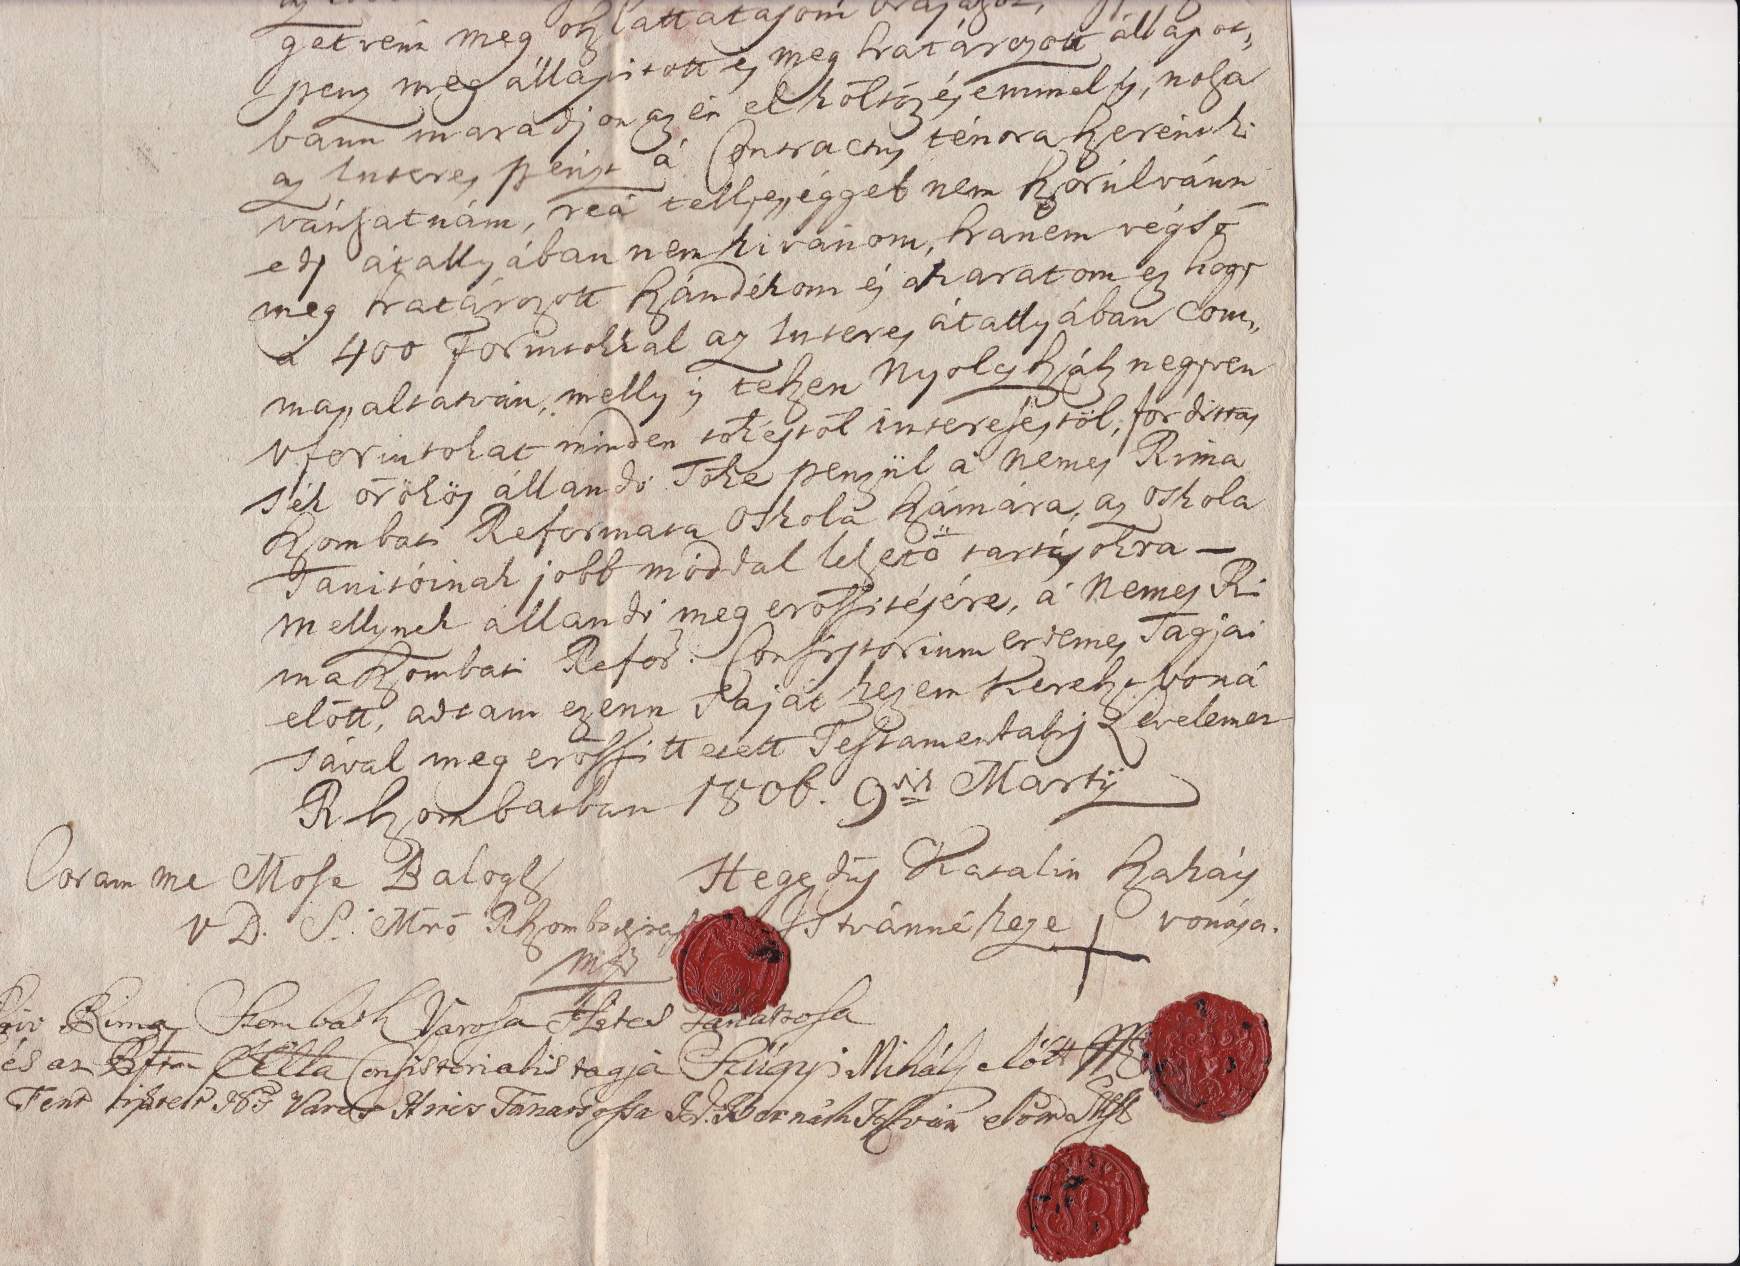 meg
penz meg állapitott és meg határozott állapot„
bann maradjon az én el költözésemmel is, noha
az Interes pénzt á Contractus ténora szerént ki
vánhatnám, reá tellyességgel nem szorúlvánn
edj átallyában nem kivánom, hanem végső
meg határozott szándékom és akaratom ez hogy
á 400 forintokkal az Interes átallyában com„
mapaltatván, melly is teszen Nyoltz száz negyven
Vforintokat minden tökéstöl interesestöl, fordittas
sék örökös állandó Töke penzül á Nemes Rima
Szombati Reformata Oskola számára, az Oskola
Tanitóinak jobb móddal lehető tartásokra —
Mellynek állandó meg erőssitésére, á Nemes Ri
ma Szombati Refor. Consistorium erdemes Tagjai
előtt, adtam ezenn Saját kezem Kereszt voná
sával meg erőssittetett Testamentalis Levelemet
R Szombatban 1806. 9dik Martij
Coram me Mose Balogh Hegedűs Katalin Szakáts
V D. S. Mrō Istvánné keze + vonása.
Rima Szombath Várossa Hites Tanátsossa
és az Consistorialis tagja Szűgyi Mihály előtt
Fent Varos Hites Tanatsossa Bornáth István előtt